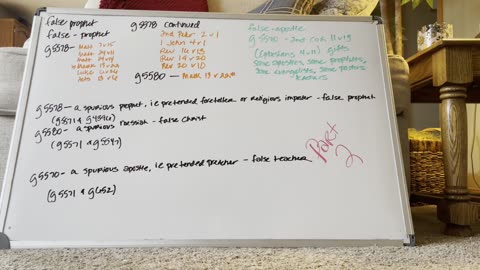 false prophet
false - prophet
g5578 -
Matt 7 v 15
Matt 24 v 11
Matt 24 v 24
Mark 13 v 22
Luke 6 v 26
Acts 13 v 6
g5578 continued
2nd Peter 2 v 1
1 John 4 v 1
Rev 16 v 13
Rev 19 v 20
Rev 20 v 10
g5580 — Mark 13 v 22
false-apostle
g5570 - 2nd Cor. 11 v 13
(Ephesians 4 v 11) gifts
some apostles, some prophets,
some evangelists, some pastors
teachers
g5578 - a spurious prophet, i.e pretended foreteller or religious imposter - false prophet
(g5571 & g4396)
g5580 - a spurious messiah - false Christ
(g5571 & g5547)
g5570 - a spurious apostle, i.e pretended preacher - false teacher
(g5571 & g652)
Part
2